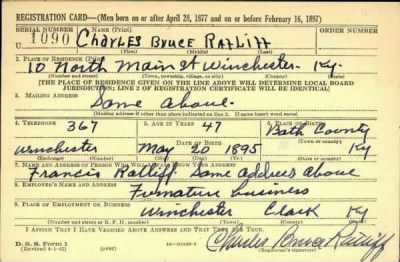 REGISTRATION CARD—(Men born on or after April 28, 1877 and on or before February 16, 1897)
SERIAL NUMBER 1. NAME (Print) ORDER NUMBER
U 1090 Charles Bruce Ratliff
(First) (Middle) (Last)
2. PLACE OF RESIDENCE (Print)
10 North Main st Winchester- Ky.
(Number and street) (Town, township, village, or city) (County) (State)
[THE PLACE OF RESIDENCE GIVEN ON THE LINE ABOVE WILL DETERMINE LOCAL BOARD
JURISDICTION; LINE 2 OF REGISTRATION CERTIFICATE WILL BE IDENTICAL]
3. MAILING ADDRESS
Same above.
[Mailing address if other than place indicated on line 2. If same insert word same]
4. TELEPHONE 5. AGE IN YEARS 6. PLACE OF BIRTH
367 47 Bath County
DATE OF BIRTH (Town or county)
Winchester May 20 1895 Ky
(Exchange) (Number) (Mo.) (Day) (Yr.) (State or country)
7. NAME AND ADDRESS OF PERSON WHO WILL ALWAYS KNOW YOUR ADDRESS
Francis Ratliff. Same address above
8. EMPLOYER'S NAME AND ADDRESS
Furnature business
9. PLACE OF EMPLOYMENT OR BUSINESS
Winchester Clark Ky
(Number and street or R. F. D. number) (Town) (County) (State)
I AFFIRM THAT I HAVE VERIFIED ABOVE ANSWERS AND THAT THEY ARE TRUE.
D. S. S. Form 1
(Revised 4-1-42) (over) Charles Bruce Ratliff
(Registrant's signature)